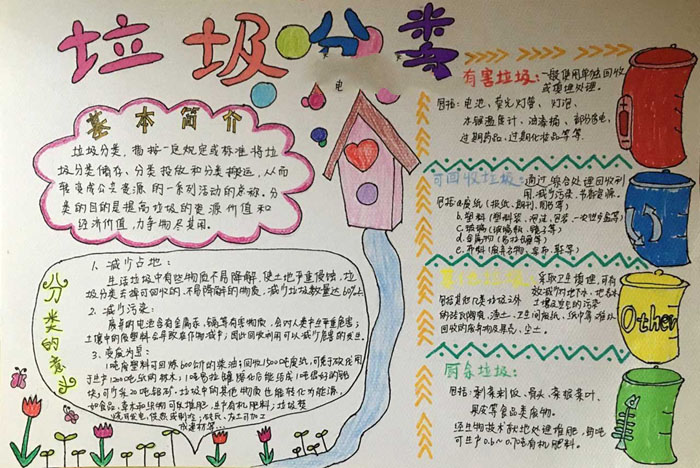 垃圾分类
电
基本简介
垃圾分类,指按一定规定或标准将垃
圾分类储存、分类投放和分类搬运,从而
转变成公共资源的一系列活动的总称,分
类的目的是提高垃圾的资源价值和
经济价值,力争物尽其用。
分类的意义
1、减少占地:
生活垃圾中有些物质不易降解,使土地严重侵蚀,垃
圾分类去掉可回收的、不易降解的物质,减少垃圾数量达60%
2、减少污染:
废弃的电池含有金属汞、镉等有害物质,会对人类产生严重危害;
土壤中的废塑料会导致农作物减产;因此回收利用可以减少危害的发生。
3、变废为宝:
1吨废塑料可回炼600公斤的柴油;回收1500吨废纸,可免于砍伐用
于生产1200吨纸的林木;1吨易拉罐熔化后能结成1吨很好的铝
块,可少采20吨铝矿。垃圾中的其他物质也能转化为能源,
如食品、草木和织物可以堆肥,生产有机肥料;垃圾焚
有害垃圾:一般使用单独回收
或填埋处理。
包括:电池、荧光灯管、灯泡、
水银温度计、油漆桶、部分家电、
过期药品、过期化妆品等等。
可回收垃圾:通过综合处理回收利
用,减少污染,节省资源。
包括a.废纸(报纸、期刊、
b.塑料(塑料袋、
c.玻璃(玻璃瓶、镜子等)
d.金属物(易拉罐等)
e.布料(废弃衣物、
其他垃圾:采取卫生填埋,可有
效减少对地下水、地表水
土壤及空气的污染
包括其他几类垃圾之外
的砖瓦陶瓷、渣土、卫生间废纸、纸巾等难以
回收的废弃物及果壳、尘土。
Other
厨余垃圾:
包括:剩菜剩饭、骨头、菜根菜叶、
果皮等食品类废物。
经生物技术就地处理堆肥,每吨
可生产0.6~0.7吨有机肥料。